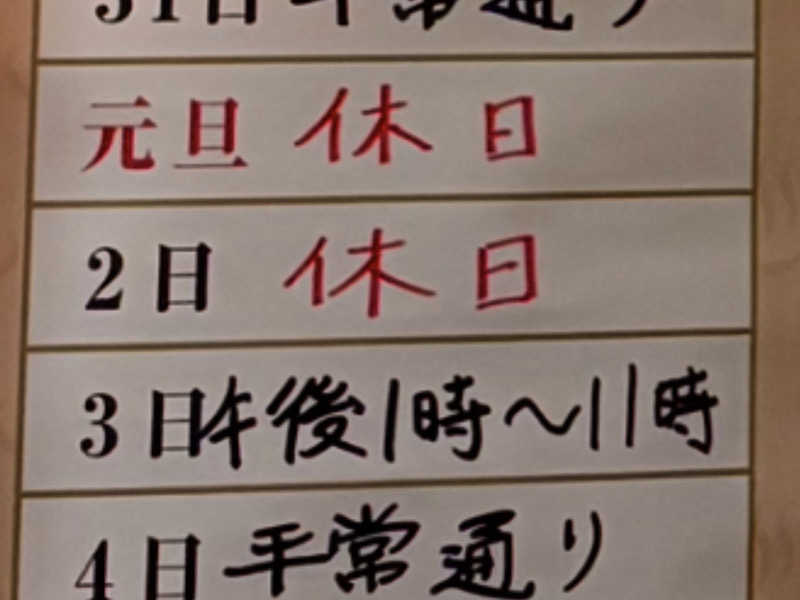 31日 平常通り
元旦 休日
2日 休日
3日 午後1時～11時
4日 平常通り